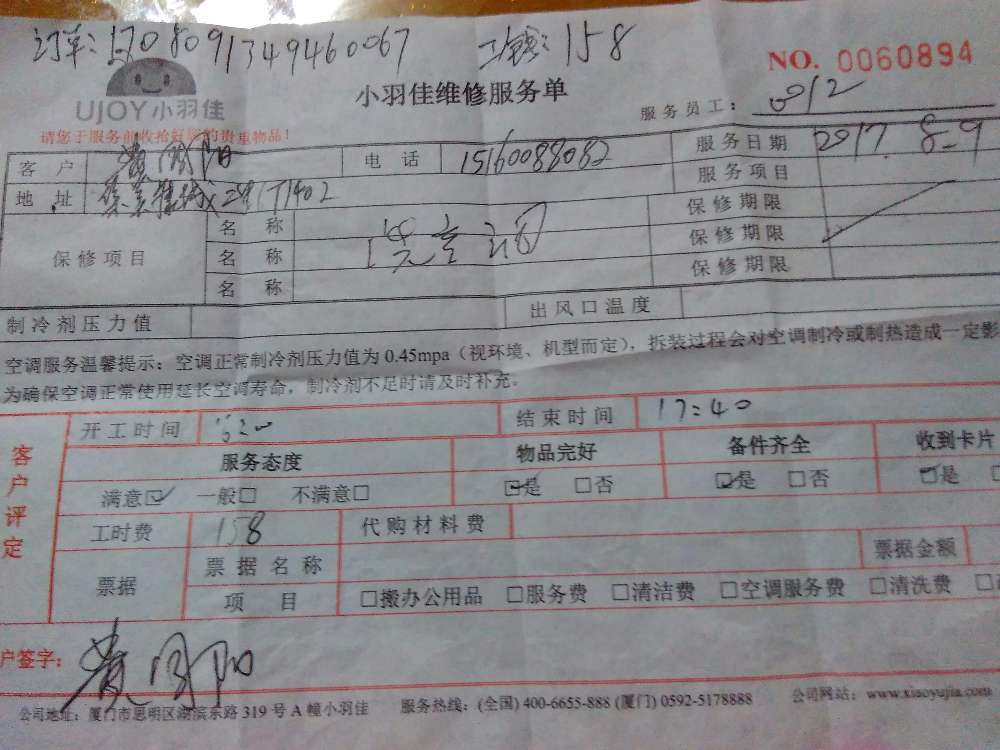 订单: 170809134946 0067 工钱: 158
NO. 0060894
UJOY小羽佳
小羽佳维修服务单
服务员工: 0912
请您于服务前收拾好您的贵重物品!
客 户 黄 阳 电 话 15160088082 服务日期 2017. 8-9
地 址 1402 服务项目
保修项目 名 称 保修期限
名 称 保修期限
名 称 保修期限
制冷剂压力值 出风口温度
空调服务温馨提示: 空调正常制冷剂压力值为 0.45mpa (视环境、机型而定), 拆装过程会对空调制冷或制热造成一定影
为确保空调正常使用延长空调寿命, 制冷剂不足时请及时补充。
客户评定
开工时间 结束时间 17:40
服务态度 物品完好 备件齐全 收到卡片
满意☑ 一般□ 不满意□ ☑是 □否 ☑是 □否 ☑是
工时费 158 代购材料费
票据 票 据 名 称 票据金额
项 目 □搬办公用品 □服务费 □清洁费 □空调服务费 □清洗费
户签字: 黄 阳
公司地址: 厦门市思明区湖滨东路 319 号 A 幢小羽佳 服务热线: (全国) 400-6655-888 (厦门) 0592-5178888 公司网站: www.xiaoyujia.com